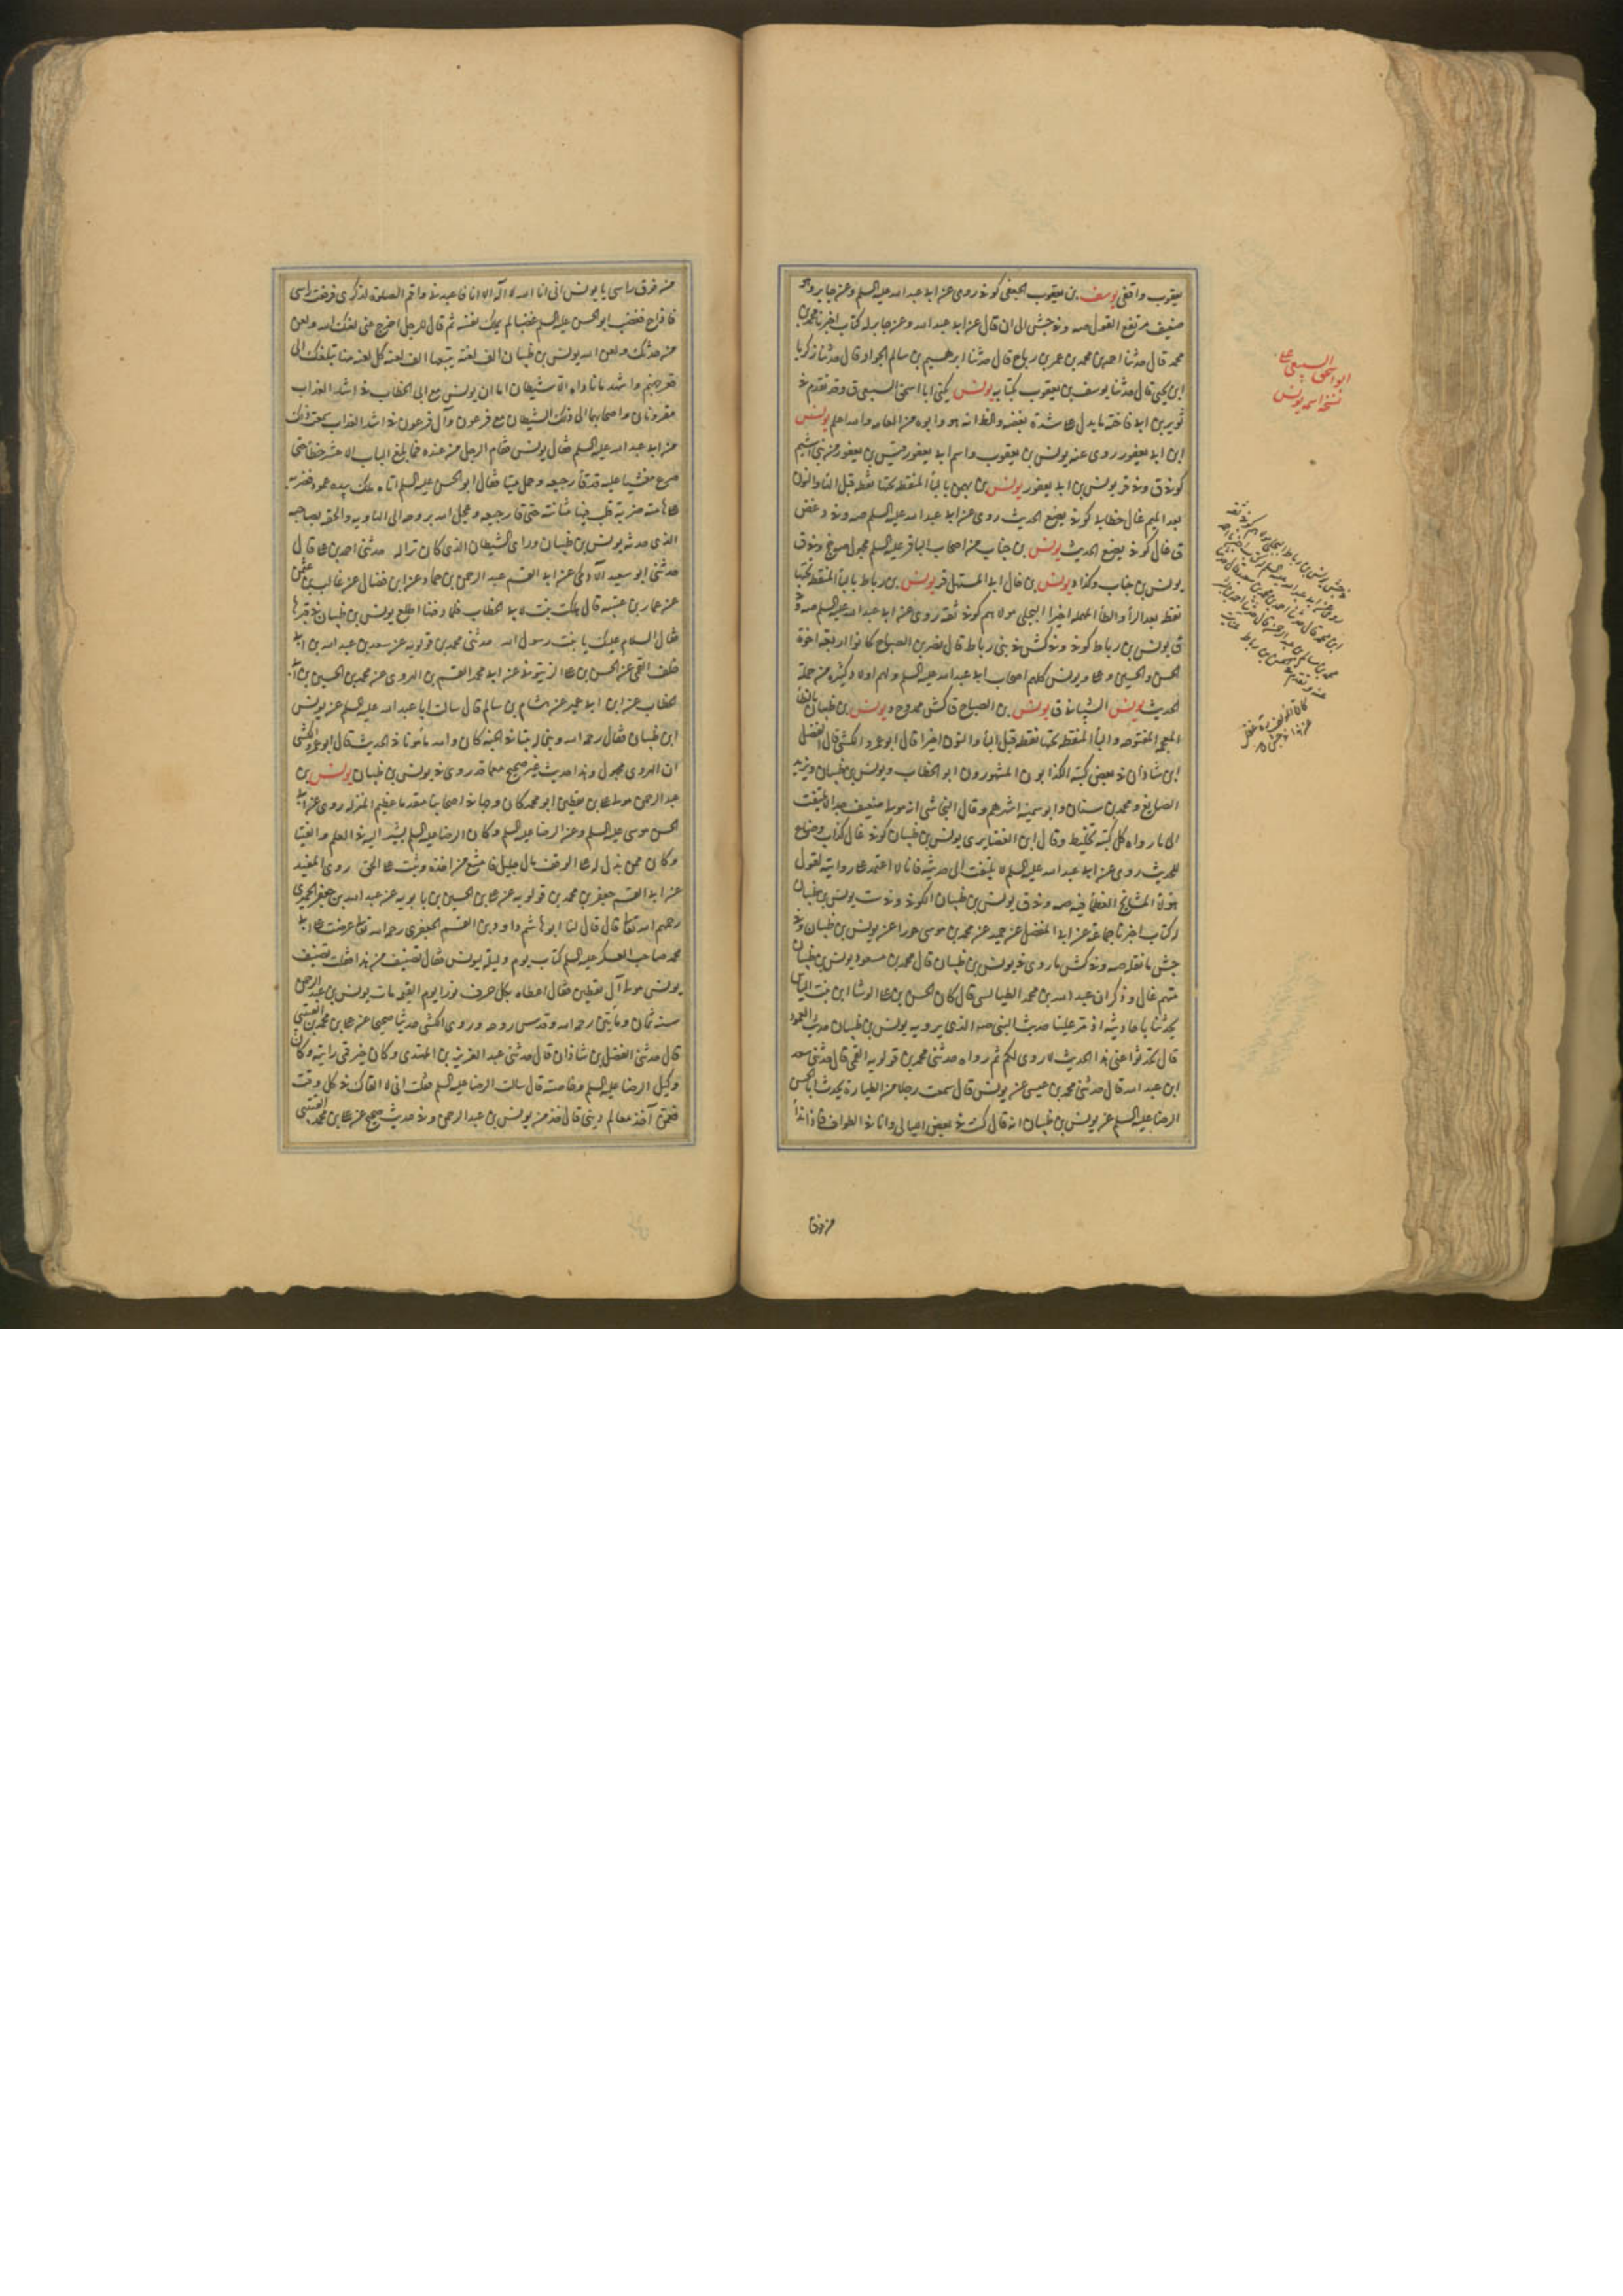 يعقوب واقفى يوسف بن يعقوب الجعفى كوفى روى عن ابى عبد الله عليه السلم وعن جابر وهو
ضعيف مرتفع القول صه وفى جش الى ان قال عن ابى عبد الله وعن جابر له كتاب اخبرنا محمد بن
محمد قال حدثنا احمد بن محمد بن عمر بن رباح قال حدثنا ابرهيم بن سالم الجواد قال حدثنا زكريا
ابن يحيى قال حدثنا يوسف بن يعقوب بكتابه يونس يكنى ابا اسحق السبيعى ق وقد تقدم فى
ثوير بن ابى فاخته ما يدل على شدة بغضه والظ انه هو وابوه من العامه والله اعلم يونس
ابن ابى يعفور روى عنه يونس بن يعقوب واسم ابى يعفور قيس بن يعفور من بنى اشيم
كوفى ق وفى قر يونس بن ابى يعفور يونس بن بهمن بالباء المنقطه تحتها نقطه قبل الهاء والنون
بعد الميم غال خطابى كوفى يضع الحديث روى عن ابى عبد الله عليه السلم صه وفى د غض
ق غال كوفى يضع الحديث يونس بن جناب من اصحاب الباقر عليه السلم مجهول صه وفى ق
يونس بن جناب وكذا د يونس بن خال ابى المستهل قر يونس بن رباط بالباء المنقطه تحتها
نقطه بعد الراء والطاء المهمله اخيرا البجلى مولاهم كوفى ثقه روى عن ابى عبد الله عليه السلم صه و
ق يونس بن رباط كوفى وفى كش فى بنى رباط قال نصر بن الصباح كانوا اربعه اخوة
الحسن والحسين وعلى ويونس كلهم اصحاب ابى عبد الله عليه السلم ولهم اولاد كثيره من حملة
الحديث يونس الشيبانى ق يونس بن الصباح ق كش ممدوح د يونس بن ظبيان بالظاء
المعجمه المفتوحه والباء المنقطه تحتها نقطه قبل الياء والنون اخيرا قال ابو عمرو الكشى قال الفضل
ابن شاذان فى بعض كتبه الكذابون المشهورون ابو الخطاب ويونس بن ظبيان ويزيد
الصايغ ومحمد بن سنان وابو سمينه اشهرهم وقال النجاشى انه مولى ضعيف جدا لا يلتفت
الى ما رواه كل كتبه تخليط وقال ابن الغضايرى يونس بن ظبيان كوفى غال كذاب وضاع
للحديث روى عن ابى عبد الله عليه السلم لا يلتفت الى حديثه فانا لا اعتمد على روايته لقول
هؤلاء المشايخ العظماء فيه صه وفى ق يونس بن ظبيان الكوفى وفى ست يونس بن ظبيان
له كتاب اخبرنا جماعة عن ابى المفضل عن حميد عن محمد بن موسى خورا عن يونس بن ظبيان وفى
جش ما نقله صه وفى كش ما روى فى يونس بن ظبيان قال محمد بن مسعود يونس بن ظبيان
متهم غال وذكر ان عبد الله بن محمد الطيالسى قال كان الحسن بن على الوشا ابن بنت الياس
يحدثنا باحاديثه اذ مر علينا حديث النبى صه الذى يرويه يونس بن ظبيان حديث العمود
قال تحدثوا عنى هذا الحديث لا روى لكم ثم رواه حدثنى محمد بن قولويه القمى قال حدثنى سعد
ابن عبد الله قال حدثنى محمد بن عيسى عن يونس قال سمعت رجلا من الطياره يحدث ابا الحسن
الرضا عليه السلم عن يونس بن ظبيان انه قال كنت فى بعض الليالى وانا فى الطواف فاذا نداء
من فوق
ابو اسحق السبيعى
نسخه اسمه يونس
من فوق راسى يا يونس انى انا الله لا اله الا انا فاعبدنى واقم الصلوة لذكرى فرفعت راسى
فاذا ج فغضب ابو الحسن عليه السلم غضبا لم يملك نفسه ثم قال للرجل اخرج عنى لعنك الله ولعن
من حدثك ولعن الله يونس بن ظبيان الف لعنه يتبعها الف لعنه كل لعنه منها تبلغك الى
قعر جهنم واشهد ما ناداه الا شيطان اما ان يونس مع ابى الخطاب فى اشد العذاب
مقرونان واصحابهما الى ذلك الشيطان مع فرعون وآل فرعون فى اشد العذاب سمعت ذلك
من ابى عبد الله عليه السلم فقال يونس فقام الرجل من عنده فما بلغ الباب الا عشر خطأ حتى
صرع مغشيا عليه قد قاء رجيعه وحمل ميتا فقال ابو الحسن عليه السلم اتاه ملك بيده عمود فضربه
على هامته ضربة قلب فيها مثانته حتى قاء رجيعه وعجل الله بروحه الى الهاويه والحقه بصاحبه
الذى حدثه يونس بن ظبيان وراى الشيطان الذى كان تراا له حدثنى احمد بن على قال
حدثنى ابو سعيد الآدمى عن ابى القسم عبد الرحمن بن حماد عن ابن فضال عن غالب بن عثمن
عن عمار بن عتبه قال هلكت بنت لابى الخطاب فلما دفنها اطلع يونس بن ظبيان فى قبرها
فقال السلام عليك يا بنت رسول الله حدثنى محمد بن قولويه عن سعد بن عبد الله بن ابى
خلف القمى عن الحسن بن على الزيتونى عن ابى محمد القسم بن الهروى عن محمد بن الحسين بن ابى
الخطاب عن ابن ابى عمير عن هشام بن سالم قال سالت ابا عبد الله عليه السلم عن يونس
ابن ظبيان فقال رحمه الله وبنى له بيتا فى الجنه كان والله مأمونا فى الحديث قال ابو عمرو الكشى
ان الهروى مجهول وهذا حديث غير صحيح مع ما قد روى فى يونس بن ظبيان يونس بن
عبد الرحمن مولى على بن يقطين ابو محمد كان وجها فى اصحابنا متقدما عظيم المنزله روى عن ابى
الحسن موسى عليه السلم وعن الرضا عليه السلم وكان الرضا عليه السلم يشير اليه فى العلم والفتيا
وكان ممن بذل له على الوقف مال جليل فامتنع من اخذه وثبت على الحق روى المفيد
عن ابى القسم جعفر بن محمد بن قولويه عن على بن الحسين بن بابويه عن عبد الله بن جعفر الحميرى
رحمهم الله تعالى قال قال لنا ابو هاشم داود بن القسم الجعفرى رحمه الله تعالى عرضت على ابى
محمد صاحب العسكر عليه السلم كتاب يوم وليلة ليونس فقال تصنيف من هذا فقلت تصنيف
يونس مولى آل يقطين فقال اعطاه بكل حرف نورا يوم القيمه مات يونس بن عبد الرحمن
سنه ثمان ومايتين رحمه الله وقدس روحه وروى الكشى حديثا صحيحا عن على بن محمد بن القتيبى
قال حدثنى الفضل بن شاذان قال حدثنى عبد العزيز بن المهتدى وكان خير قمى رايته وكان
وكيل الرضا عليه السلم وخاصته قال سالت الرضا عليه السلم فقلت انى لا القاك فى كل وقت
فعمن آخذ معالم دينى قال خذ من يونس بن عبد الرحمن وفى حديث صحيح عن على بن محمد القتيبى